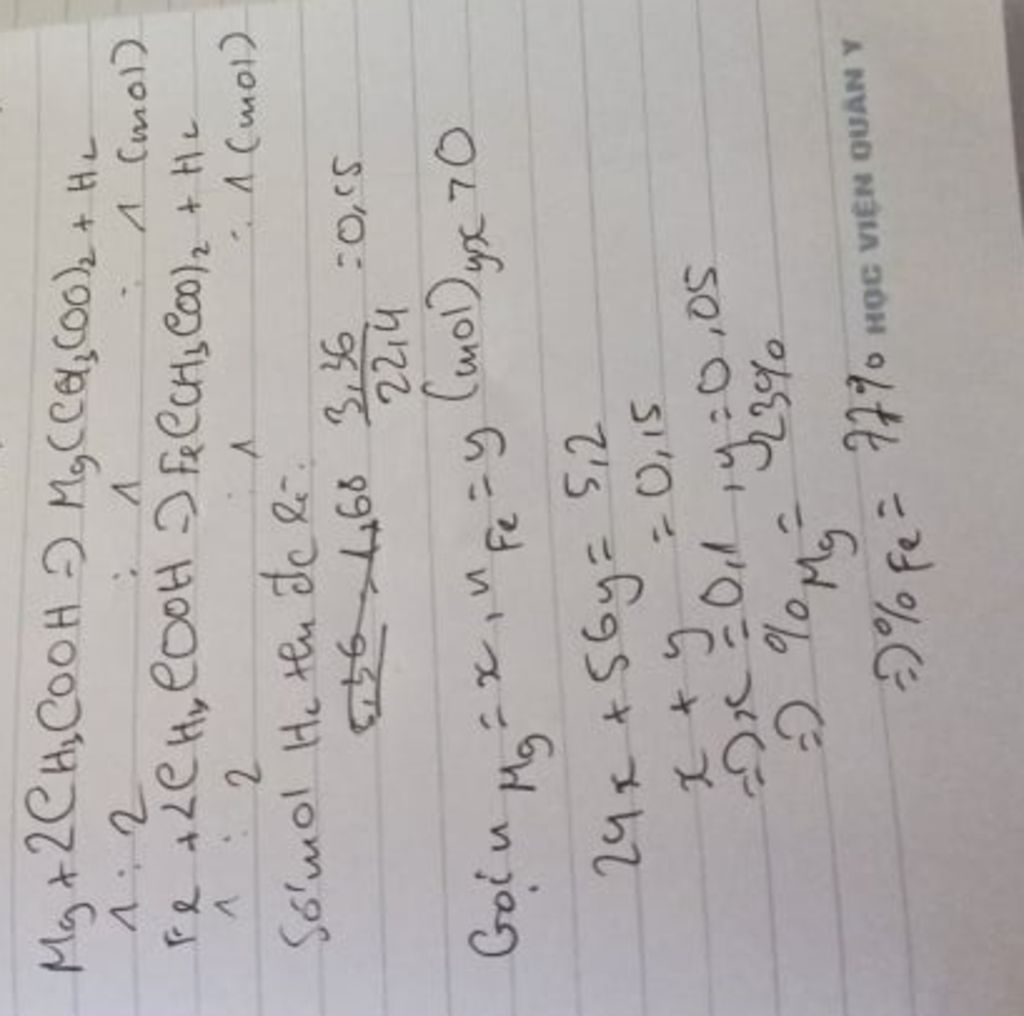 Mg + 2CH₃COOH => Mg(CH₃COO)₂ + H₂
1 : 2 : 1 : 1 (mol)
Fe + 2CH₃COOH => Fe(CH₃COO)₂ + H₂
1 : 2 : 1 : 1 (mol)
Số mol H₂ thu đc là:
3,36 / 22,4 = 0,15
Gọi n Mg = x, n Fe = y (mol) yx > 0
24x + 56y = 5,2
x + y = 0,15
=> x = 0,1, y = 0,05
=> % Mg = 23%
=> % Fe = 77%
HỌC VIỆN QUÂN Y